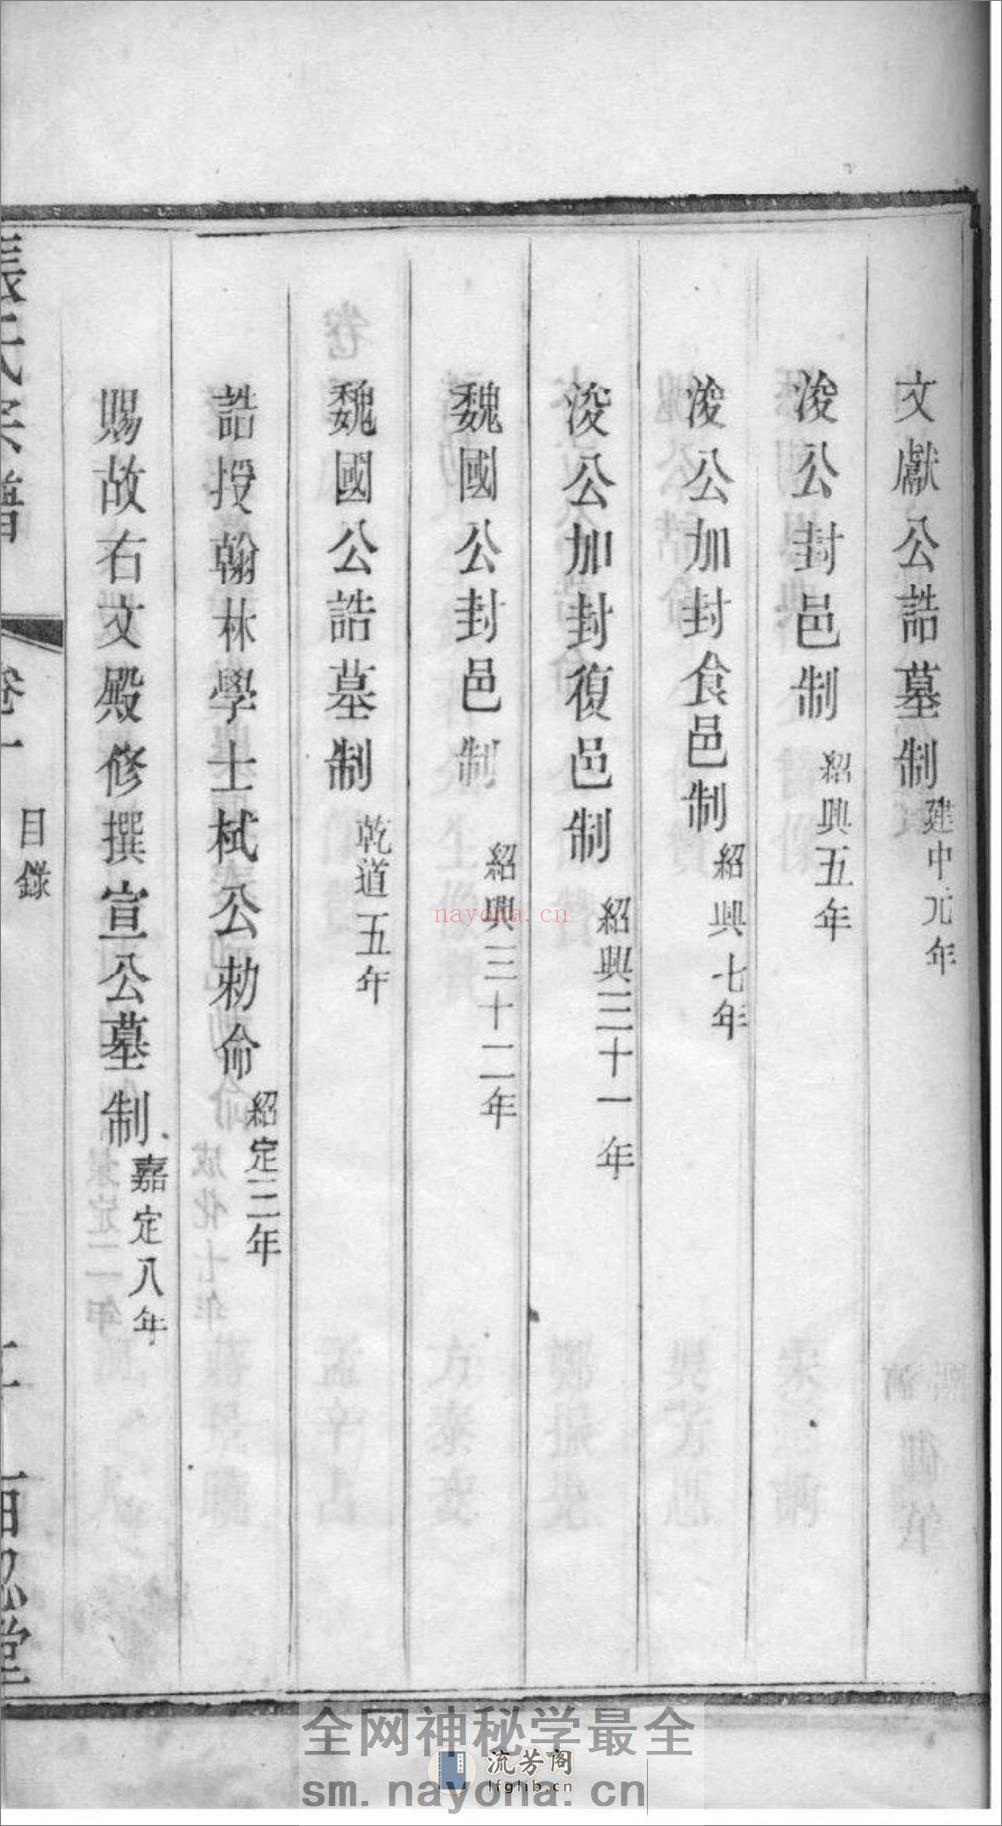 文獻公誥墓制 建中元年
浚公封邑制 紹興五年
浚公加封食邑制 紹興七年
浚公加封復邑制 紹興三十一年
魏國公封邑制 紹興三十二年
魏國公誥墓制 乾道五年
誥授翰林學士栻公勅命 紹定三年
賜故右文殿修撰宣公墓制 嘉定八年
張氏宗譜 卷一 目錄 百忍堂
nayona.cn
全网神秘学最全
流芳阁
lfglib.cn
sm.nayona.cn